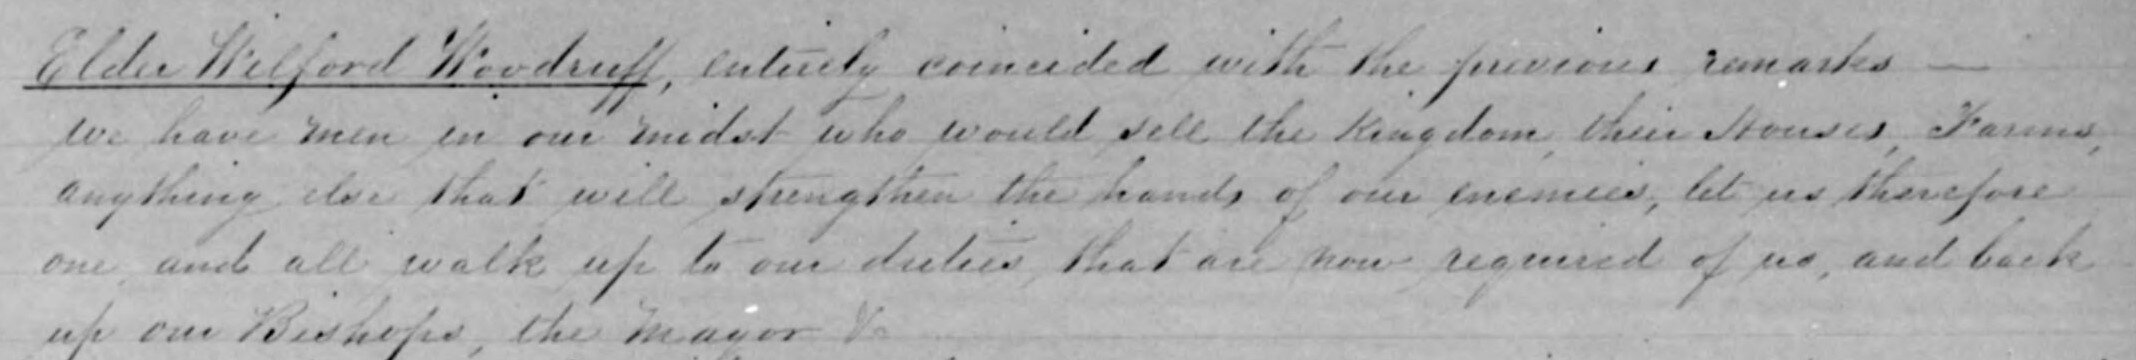 Elder Wilford Woodruff, entirely coincided with the previous remarks —
we have men in our midst who would sell the Kingdom, their Houses, Farms,
anything else that will strengthen the hands of our enemies, let us therefore
one and all walk up to our duties, that are now required of us, and back
up our Bishops, the Mayor &c